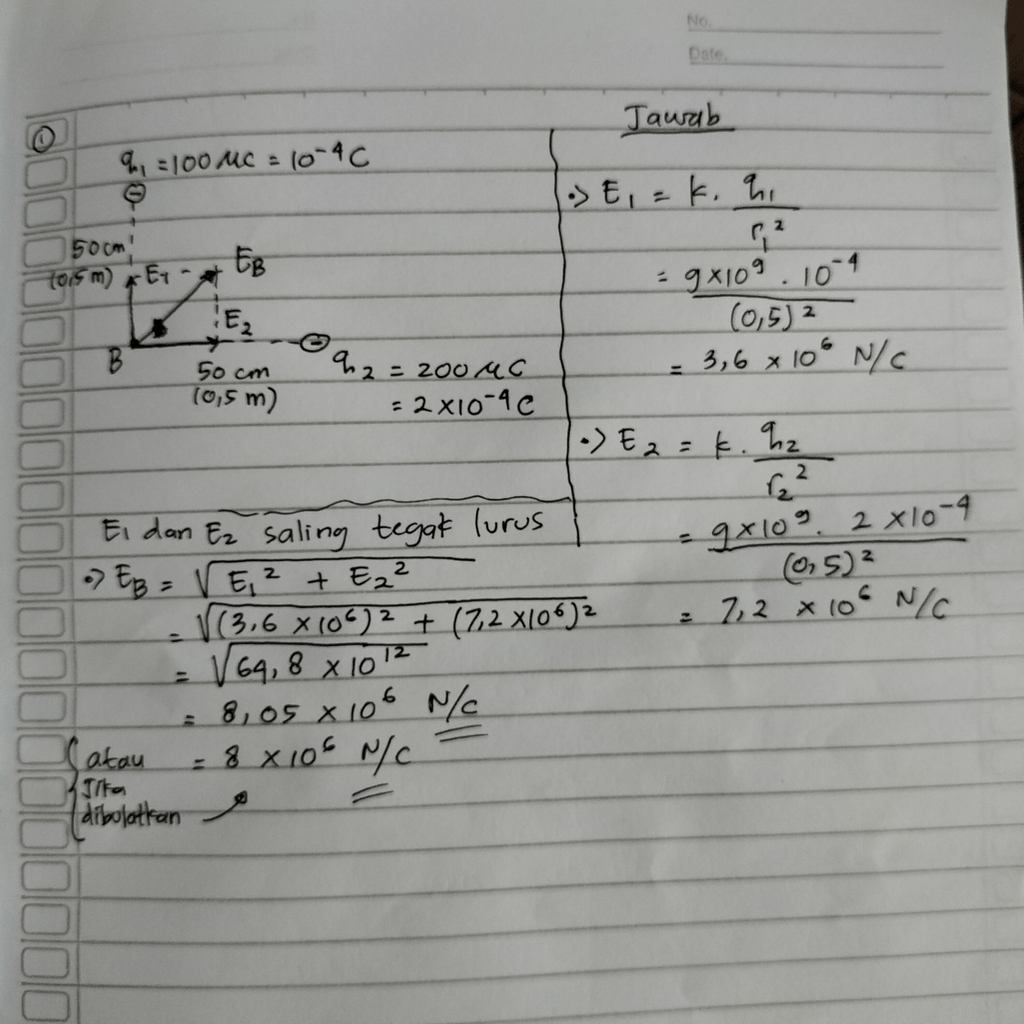 No.
Date.
①
q₁ = 100 μC = 10⁻⁴ C
⊖
50 cm
(0,5 m)
E₁
E_B
E₂
B
⊖
50 cm
(0,5 m)
q₂ = 200 μC
= 2 × 10⁻⁴ C
Jawab
•> E₁ = k. q₁ / r₁²
= 9×10⁹ . 10⁻⁴ / (0,5)²
= 3,6 × 10⁶ N/C
•> E₂ = k. q₂ / r₂²
= 9×10⁹ . 2 × 10⁻⁴ / (0,5)²
= 7,2 × 10⁶ N/C
E₁ dan E₂ saling tegak lurus
•> E_B = √(E₁² + E₂²)
= √((3,6 × 10⁶)² + (7,2 × 10⁶)²)
= √(64,8 × 10¹²)
= 8,05 × 10⁶ N/C
atau = 8 × 10⁶ N/C
Jika
dibulatkan